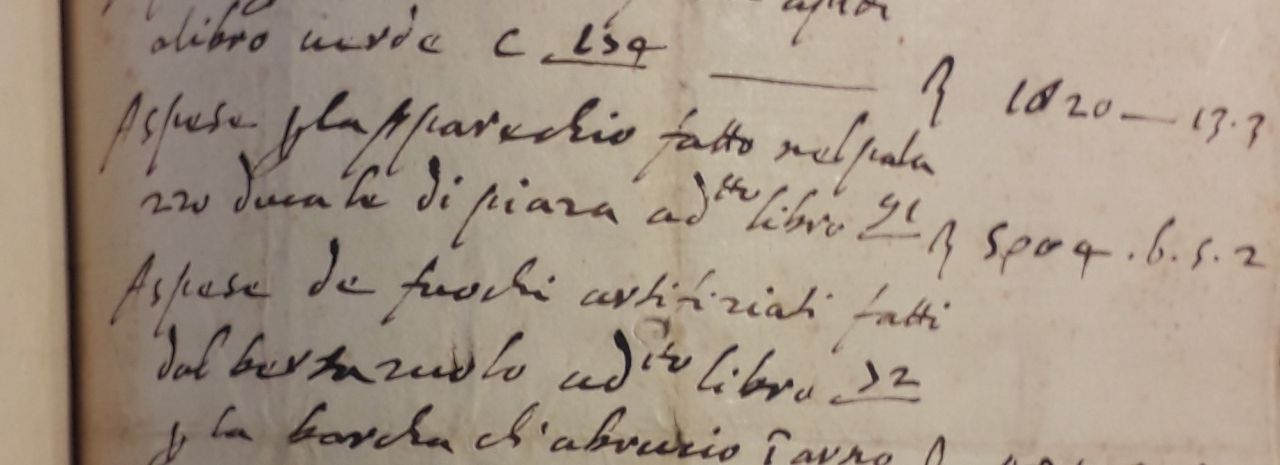 alibro uerde c 154
1820 — 13.3
Aspese p la Apparechio fatto nel pala
zzo ducale di piaza ad tto libro 91 5004.6.5.2
Aspese de fuochi artifiziati fatti
dal ad tto libro 72
p la barcha ch'abrucio